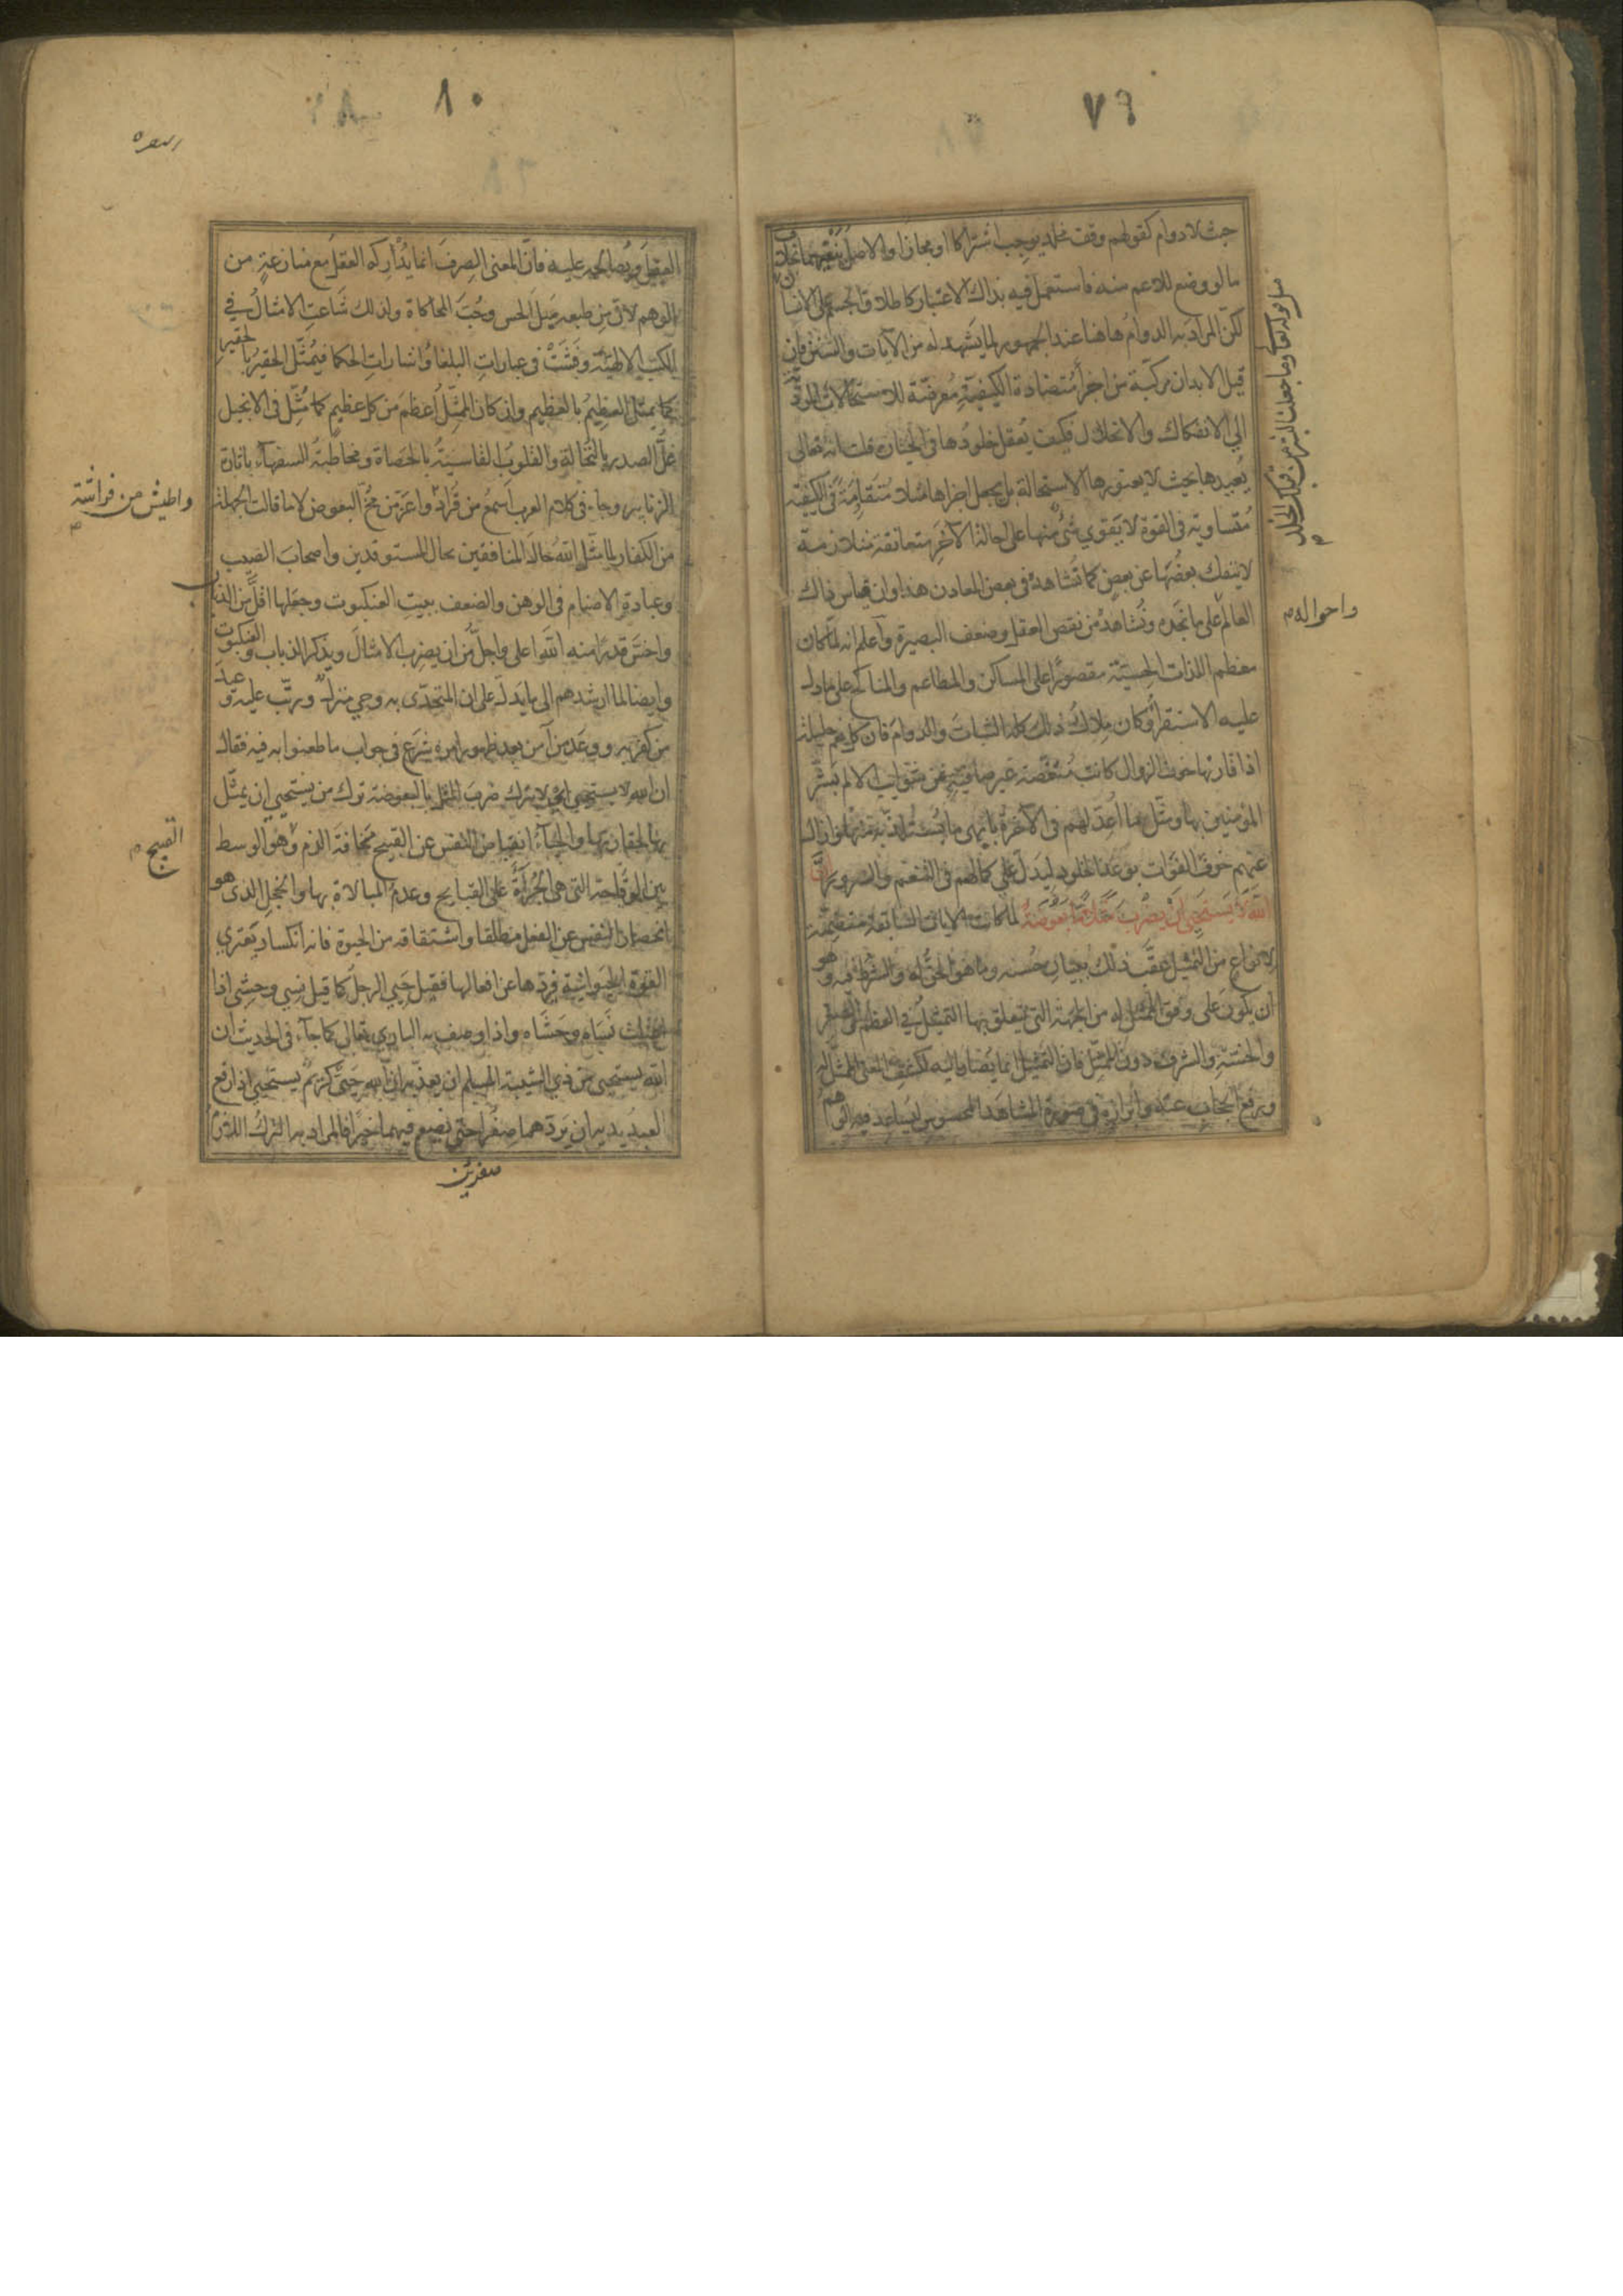 ٧٩
حيث لا دوام كقولهم وقف مخلد يوجب اشتراكا او مجازا والاصل ينفيهما بخلاف
ما لو وضع للاعم منه فاستعمل فيه بذلك الاعتبار كاطلاق الجسم على الانسان
لكن المراد به الدوام هاهنا عند الجمهور لما يشهد له من الآيات والسنن فان
قيل الابدان مركبة من اجزأ متضادة الكيفية معرضة للاستحالات المودية
الى الانفكاك والانحلال فكيف يعقل خلودها في الجنان قلت انه تعالى
يعيدها بحيث لا يعتورها الاستحالة بل يجعل اجزاها مثلا متقاومة في الكيفية
متساوية في القوة لا يقوي شئ منها على احالة الآخر متعانقة متلازمة
لا ينفك بعضها عن بعض كما تشاهد في بعض المعادن هذا وان قياس ذلك
العالم على ما نجده ونشاهده من نقص العقل وضعف البصيرة وأعلم انه لما كان
معظم اللذات الحسية مقصورا على المساكن والمطاعم والمناكح على ما دل
عليه الاستقرأ وكان ملاك ذلك كله الثبات والدوام فان كل نعمة جليلة
اذا قارنها خوف الزوال كانت منغصة غير صافية عن شوايب الالم بشر
المؤمنين بها ومثل ما اعد لهم في الآخرة بابهى ما يستلذ به منها وازال
عنهم خوف الفوات بوعد الخلود ليدل على كمالهم في التنعم والسرور انّ
الله لا يستحيي ان يضرب مثلا ما بعوضة لما كانت الايات السابقة متضمنة
لانواع من التمثيل عقب ذلك ببيان حسنه وما هو الحق له والشرط فيه وهو
ان يكون على وفق الممثل له من الجهة التي تتعلق بها التمثيل في العظم والصغر
والخسة والشرف دون الممثل فان التمثيل انما يصار اليه لكشف المعنى الممثل له
ورفع الحجاب عنه وابرازه في صورة المشاهد المحسوس ليساعد فيه الوهم
مثل قوله تعالى وما جعلنا لبشر من قبلك الخلد
واحواله م
٨٠
العقل ويصالحه عليه فان المعنى الصرف انما يدركه العقل مع منازعة من
الوهم لان من طبعه ميل الحس وحب المحاكاة ولذلك شاعت الامثال في
الكتب الالهية وفشت في عبارات البلغا واشارات الحكما فيمثل الحقير بالحقير
كما يمثل العظيم بالعظيم وان كان الممثل اعظم من كل عظيم كما مثل في الانجيل
غل الصدر بالنخالة والقلوب القاسية بالحصاة ومخاطبة السفهآء باثارة
الزنابير وجاء في كلام العرب اسمع من قراد واعز من مخ البعوض لا ما قالت الجهلة
من الكفار لما مثل الله حال المنافقين بحال المستوقدين واصحاب الصيب
وعبادة الاصنام في الوهن والضعف ببيت العنكبوت وجعلها اقل من الذباب
واخس قدرا منه الله اعلى واجل من ان يضرب الامثال ويذكر الذباب والعنكبوت
وايضا لما ارشدهم الى ما يدل على ان المتحدى به وحي منزل ورتب عليه وعيد
من كفر به ووعد من آمن بعد ظهور امره شرع في جواب ما طعنوا به فيه فقال
ان الله لا يستحيي اي لا يترك ضرب المثل بالبعوضة ترك من يستحيي ان يمثل
بها لحقارتها والحياء انقباض النفس عن القبيح مخافة الذم وهو الوسط
بين الوقاحة التي هي الجرأة على القبايح وعدم المبالاة بها والخجل الذي هو
انحصار النفس عن الفعل مطلقا واشتقاقه من الحيوة فانه انكسار يعتري
القوة الحيوانية فيردها عن افعالها فقيل حيي الرجل كما قيل نسي وحشي اذا
اعتلت نساه وحشاه واذا وصف به الباري تعالى كما جآء في الحديث ان
الله يستحيي من ذي الشيبة المسلم ان يعذبه ان الله حيي كريم يستحيي اذا رفع
العبد يديه ان يردهما صفرا حتى يضع فيهما خيرا فالمراد به الترك اللازم
واطيش من فراشة
القبيح م